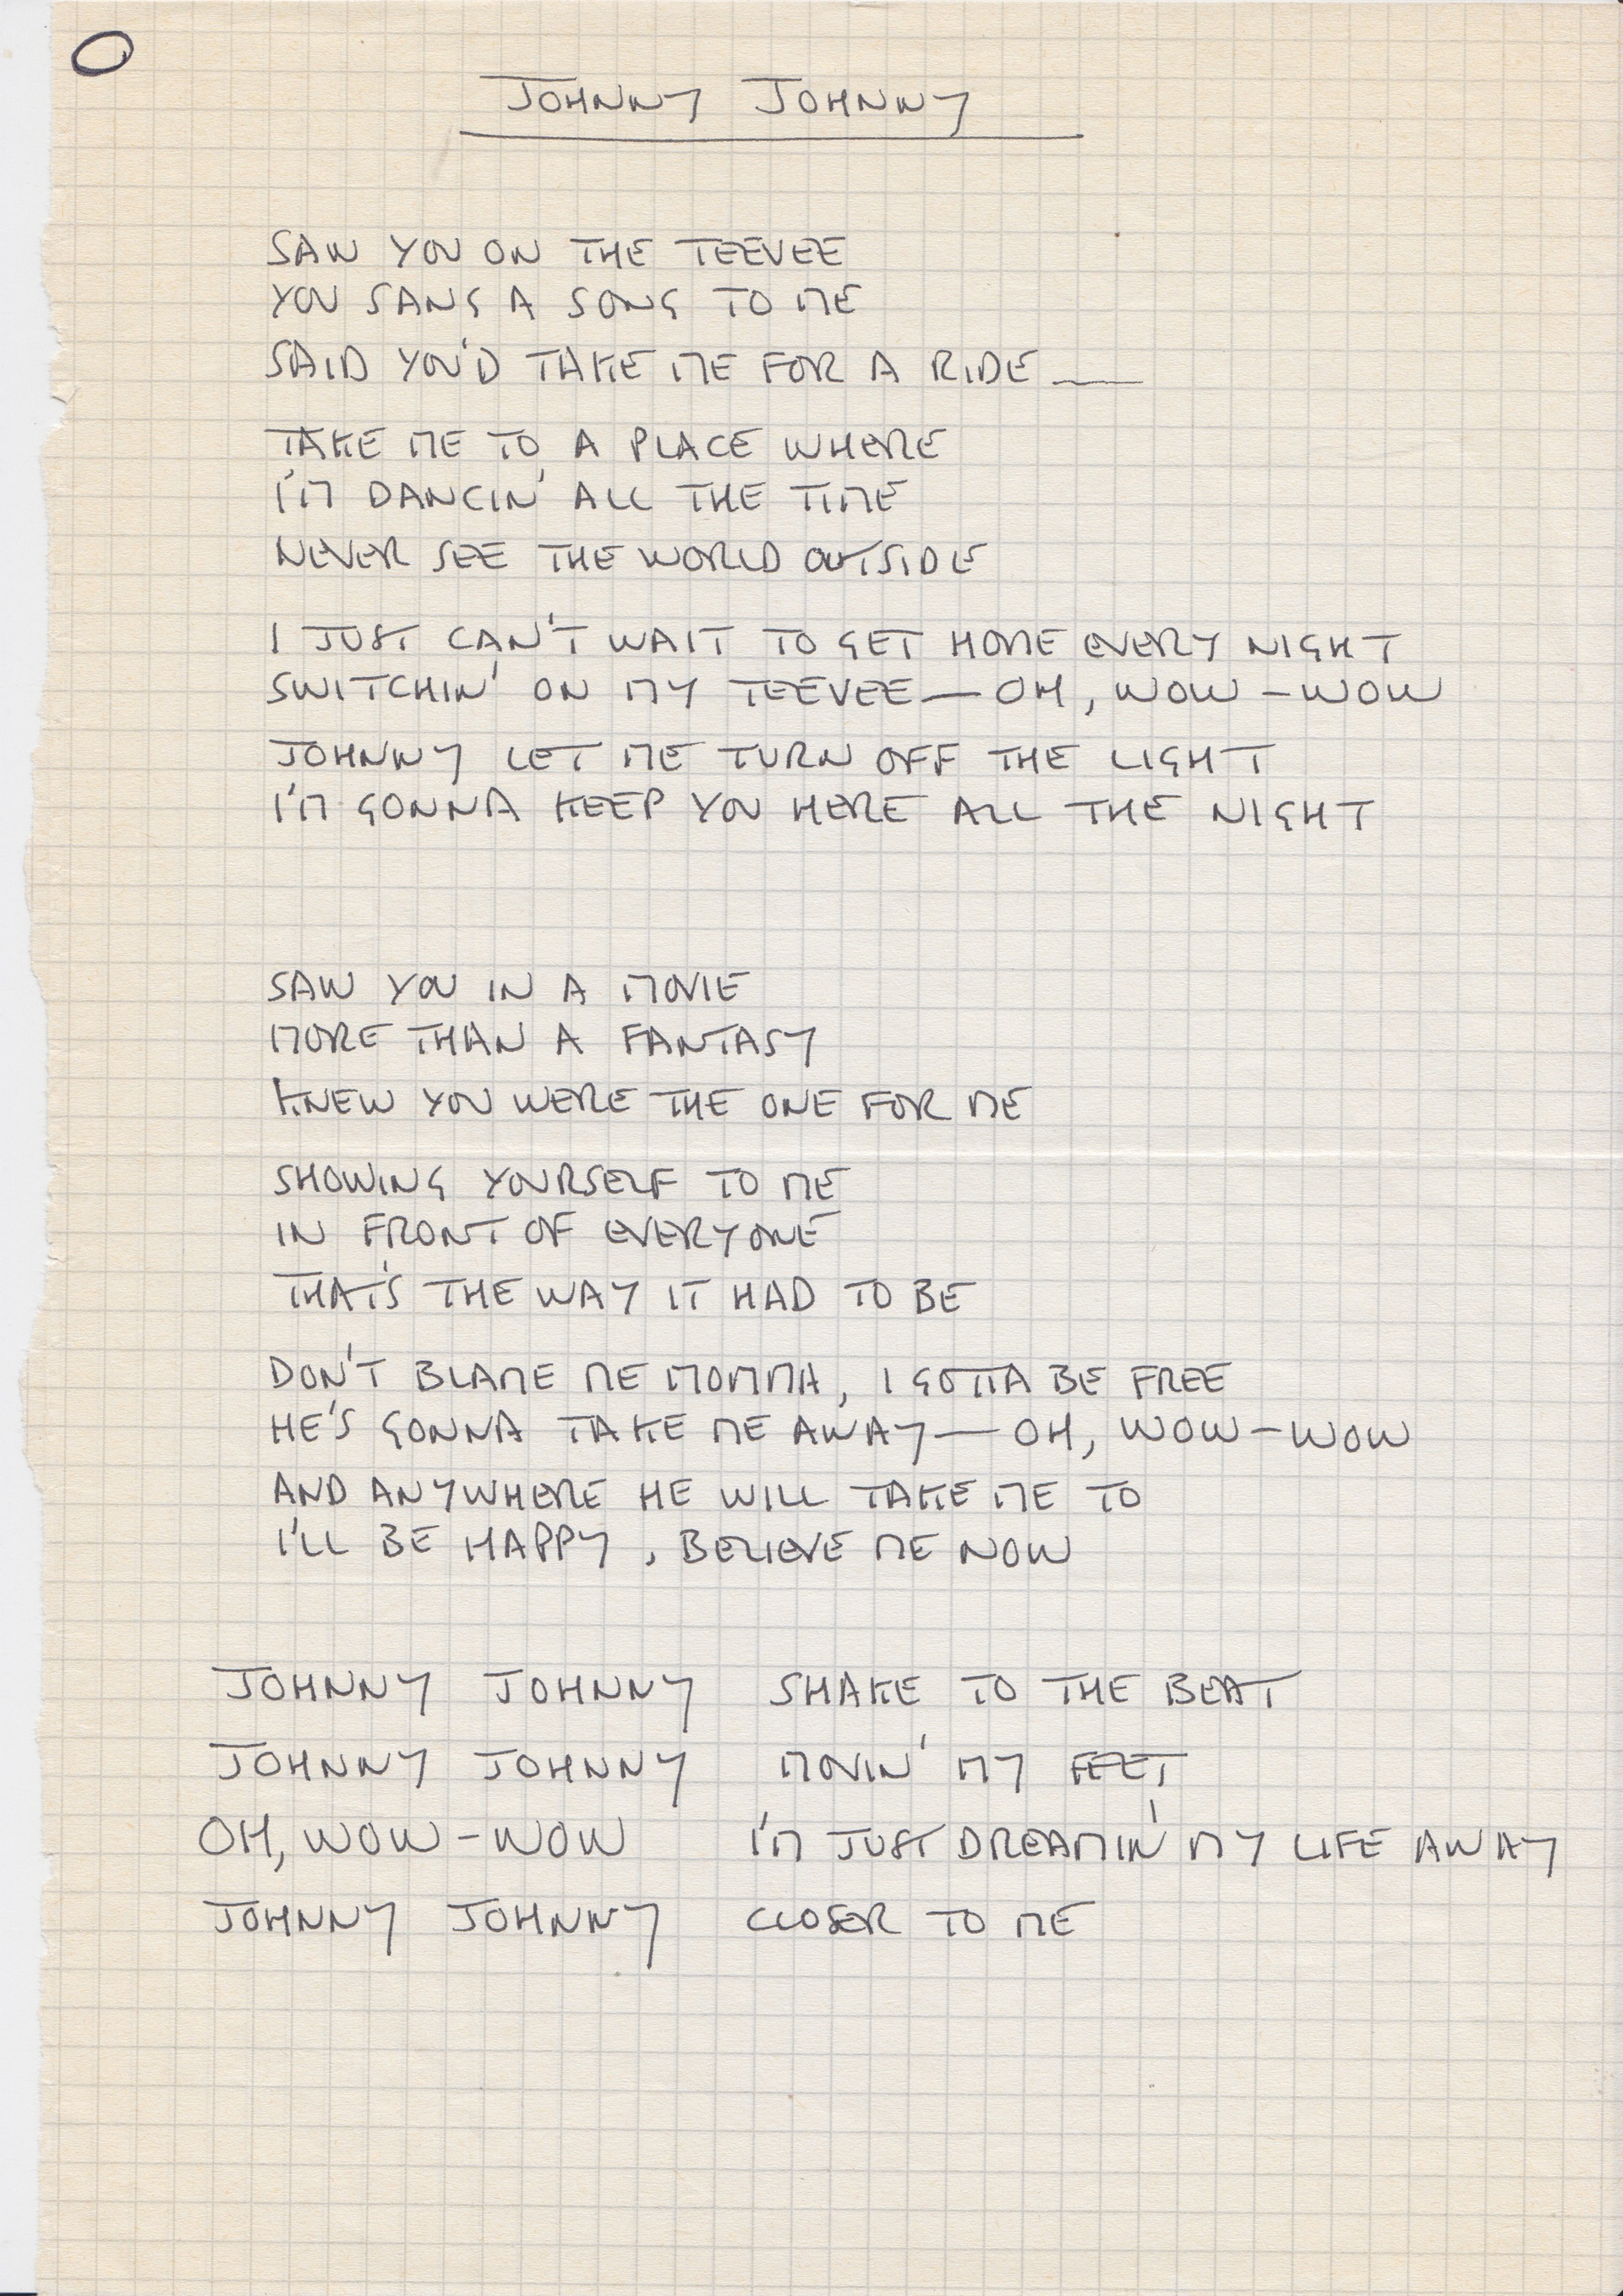 JOHNNY JOHNNY
SAW YOU ON THE TEEVEE
YOU SANG A SONG TO ME
SAID YOU'D TAKE ME FOR A RIDE —
TAKE ME TO A PLACE WHERE
I'M DANCIN' ALL THE TIME
NEVER SEE THE WORLD OUTSIDE
I JUST CAN'T WAIT TO GET HOME EVERY NIGHT
SWITCHIN' ON MY TEEVEE — OH, WOW - WOW
JOHNNY LET ME TURN OFF THE LIGHT
I'M GONNA KEEP YOU HERE ALL THE NIGHT
SAW YOU IN A MOVIE
MORE THAN A FANTASY
KNEW YOU WERE THE ONE FOR ME
SHOWING YOURSELF TO ME
IN FRONT OF EVERYONE
THAT'S THE WAY IT HAD TO BE
DON'T BLAME ME MOMMA, I GOTTA BE FREE
HE'S GONNA TAKE ME AWAY — OH, WOW - WOW
AND ANYWHERE HE WILL TAKE ME TO
I'LL BE HAPPY, BELIEVE ME NOW
JOHNNY JOHNNY SHAKE TO THE BEAT
JOHNNY JOHNNY MOVIN' MY FEET
OH, WOW - WOW I'M JUST DREAMIN' MY LIFE AWAY
JOHNNY JOHNNY CLOSER TO ME